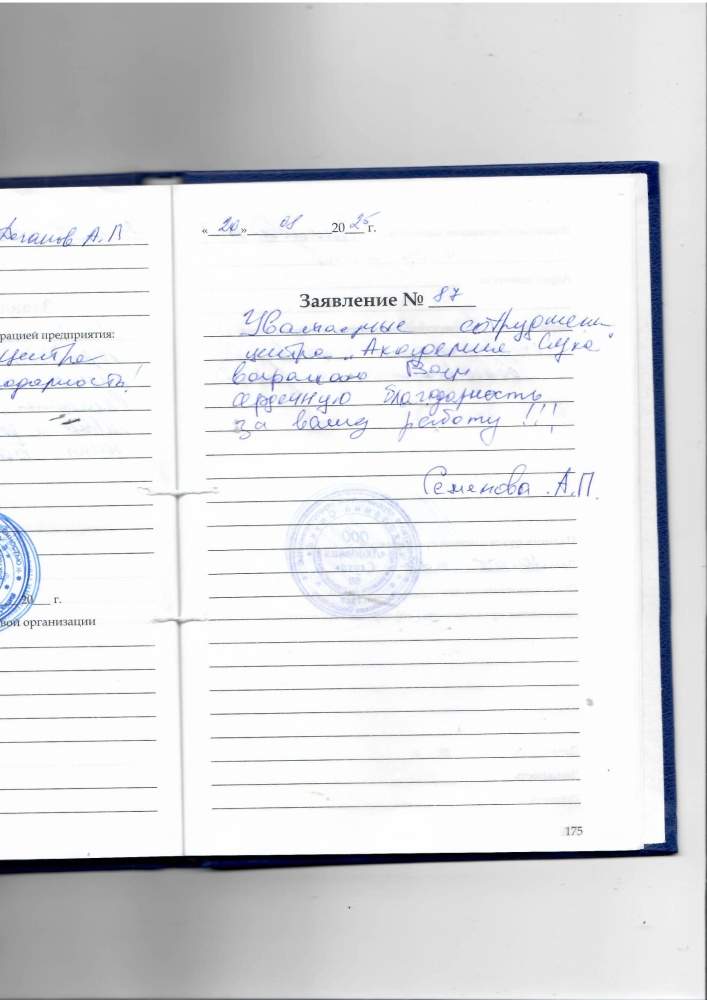 Деганов А.П
рацией предприятия:
Центра
одарность!
20 г.
вой организации
« 20 » 08 20 25 г.
Заявление № 87
Уважаемые сотрудники
центра „Академия Слуха"
выражаю Вам
сердечную благодарность
за вашу работу !!!
Семенова А.П.
ООО
175